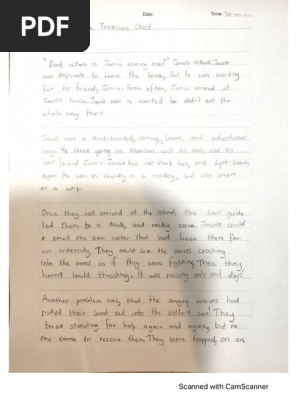 PDF
Date:
Time:
The Treasure Chest
"Dad, when is Jamie coming over?" Jacob asked. Jacob
was desperate to leave the house, but he was waiting
for his friend, Jamie. Soon after, Jamie arrived at
Jacob's house. Jacob was so excited he didn't eat the
whole way there.
Jacob was a kind-hearted, caring, brave, and adventurous
boy. He loved going on vacations with his dad and his
best friend Jamie. Jacob has jet-black hair, and light-brown
eyes. He was as cheeky as a monkey, but also smart
as a whip.
Once they had arrived at the island, the tour guide
led them to a dark, and rocky cave. Jacob could
smell the sea water that had been there for
an eternity. They could see the waves crashing
into the sand as if they were fighting. Then they
heard loud thrashing. It was raining cats and dogs.
Another problem was, that the angry waves had
pulled their boat out into the violent sea! They
tried shouting for help again and again, but no
one came to rescue them. They were trapped on an
Scanned with CamScanner